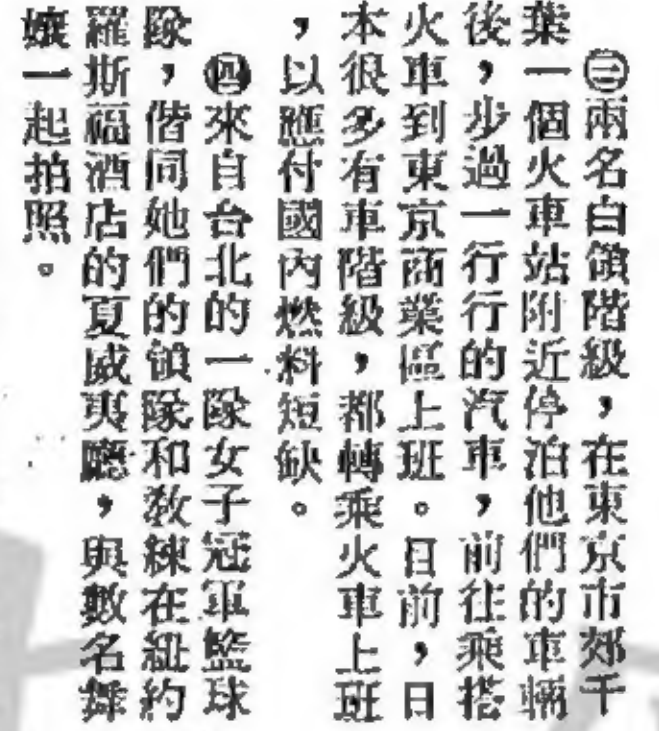 ㊂兩名白領階級，在東京市郊千
葉一個火車站附近停泊他們的車輛
後，步過一行行的汽車，前往乘搭
火車到東京商業區上班。目前，日
本很多有車階級，都轉乘火車上班
，以應付國內燃料短缺。
㊃來自台北的一隊女子冠軍籃球
隊，偕同她們的領隊和教練在紐約
羅斯福酒店的夏威夷廳，與數名舞
孃一起拍照。